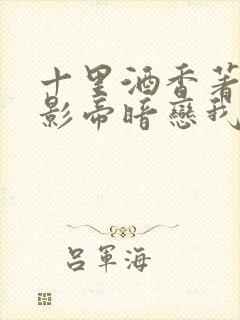 十里酒香著
影帝暗戀我
呂軍海